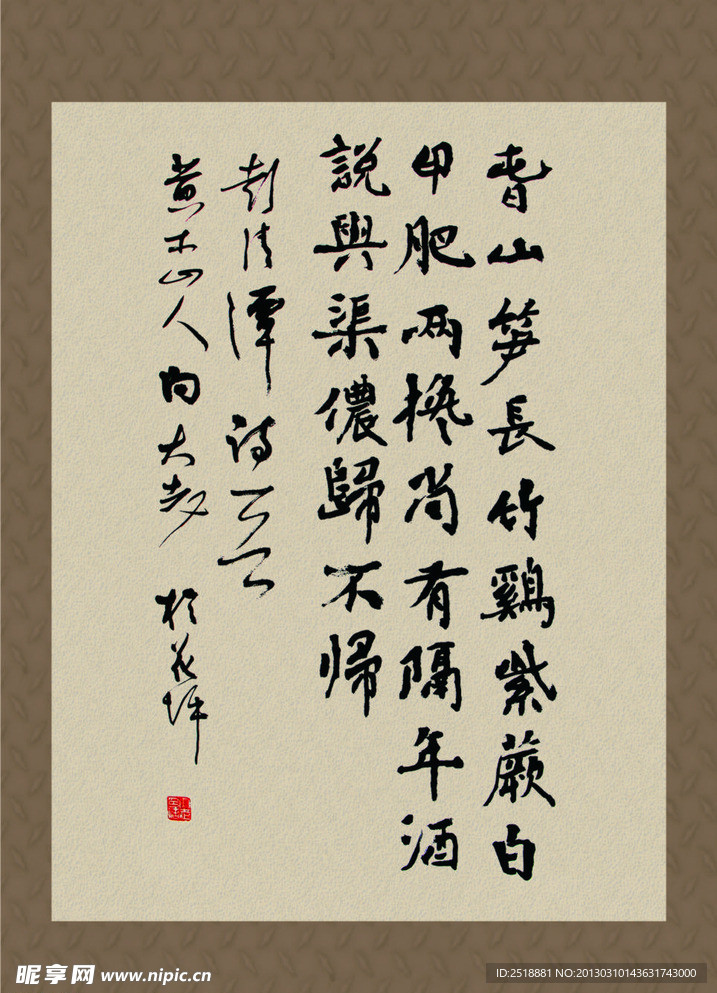 春山笋長竹鷄紫蕨白
甲肥两尚有隔年酒
說與渠儂歸不帰
彭潭詩
山人向大於花坪
昵享网 www.nipic.cn
ID:2518881 NO:20130310143631743000